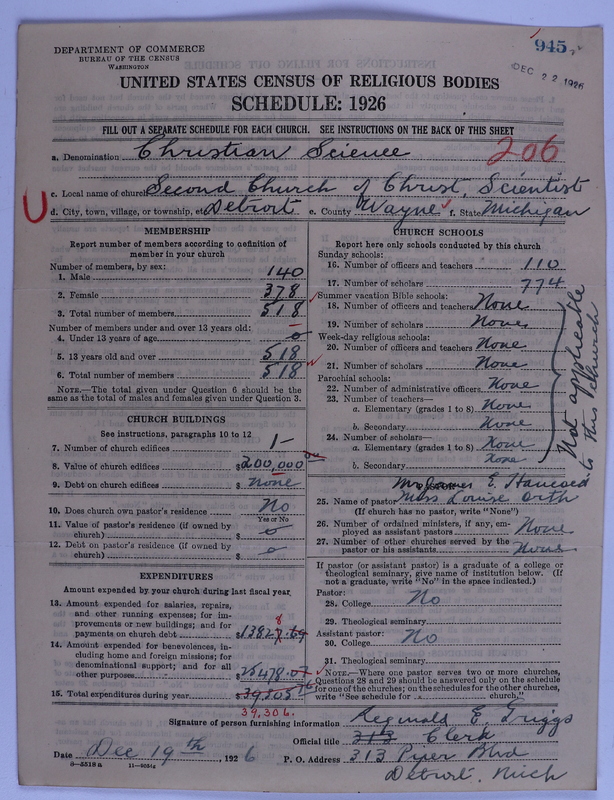 945
DEC 22 1926
DEPARTMENT OF COMMERCE
BUREAU OF THE CENSUS
WASHINGTON
UNITED STATES CENSUS OF RELIGIOUS BODIES
SCHEDULE: 1926
FILL OUT A SEPARATE SCHEDULE FOR EACH CHURCH. SEE INSTRUCTIONS ON THE BACK OF THIS SHEET
a. Denomination Christian Science 206
c. Local name of church Second Church of Christ, Scientist
U
d. City, town, village, or township, etc. Detroit e. County Wayne f. State Michigan
MEMBERSHIP
Report number of members according to definition of
member in your church
Number of members, by sex:
1. Male 140
2. Female 378
3. Total number of members 518
Number of members under and over 13 years old:
4. Under 13 years of age 0
5. 13 years old and over 518
6. Total number of members 518
NOTE.—The total given under Question 6 should be
same as the total of males and females given under Question 3.
CHURCH BUILDINGS
See instructions, paragraphs 10 to 12
7. Number of church edifices 1-
8. Value of church edifices $200,000
9. Debt on church edifices $ none
10. Does church own pastor's residence No
Yes or No
11. Value of pastor's residence (if owned by
church) $ 0
12. Debt on pastor's residence (if owned by
church) $ 0
EXPENDITURES
Amount expended by your church during last fiscal year.
13. Amount expended for salaries, repairs,
and other running expenses; for im-
provements or new buildings; and for
payments on church debt $13827.69
8
14. Amount expended for benevolences, in-
cluding home and foreign missions; for
denominational support; and for all
other purposes $25478.07
15. Total expenditures during year $39305.76
39,306.
CHURCH SCHOOLS
Report here only schools conducted by this church
Sunday schools:
16. Number of officers and teachers 110
17. Number of scholars 774
Summer vacation Bible schools:
18. Number of officers and teachers None
19. Number of scholars None
Week-day religious schools:
20. Number of officers and teachers None
21. Number of scholars None
Parochial schools:
22. Number of administrative officers None
23. Number of teachers—
a. Elementary (grades 1 to 8) None
b. Secondary None
24. Number of scholars—
a. Elementary (grades 1 to 8) None
b. Secondary None
Not applicable
to this church
E. Hancock
25. Name of pastor Miss Louise Orth
(If church has no pastor, write "None")
26. Number of ordained ministers, if any, em-
ployed as assistant pastors None
27. Number of other churches served by the
pastor or his assistants None
If pastor (or assistant pastor) is a graduate of a college or
theological seminary, give name of institution below. (If
not a graduate, write "No" in the space indicated.)
Pastor:
28. College No
29. Theological seminary
Assistant pastor:
30. College No
31. Theological seminary
NOTE.—Where one pastor serves two or more churches,
Questions 28 and 29 should be answered only on the schedule
for one of the churches; on the schedules for the other churches,
write "See schedule for church."
Signature of person furnishing information Reginald E. Griggs
Official title 313 Clerk
Date Dec 19th, 1926 P. O. Address 313 Piper Blvd
Detroit, Mich
8—5518a 11—9051a